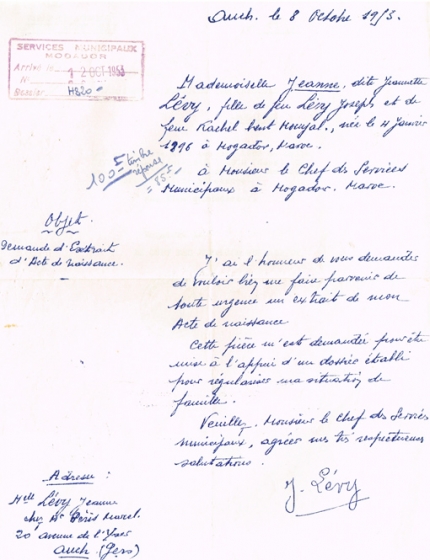 Auch. le 8 Octobre 1953.
SERVICES MUNICIPAUX
MOGADOR
Arrivé le 12 OCT 1953
N°
Dossier H620
Mademoiselle Jeanne, dite Jeannette
Lévy, fille de feu Lévy Joseph et de
feue Rachel bent Mouyal, née le 4 Janvier
1916 à Mogador, Maroc.
100F timbre
réponse
= 85F =
à Monsieur le Chef des Services
Municipaux à Mogador. Maroc.
Objet.
Demande d'Extrait
d'Acte de Naissance.
J'ai l'honneur de vous demander
de vouloir bien me faire parvenir de
toute urgence un extrait de mon
Acte de naissance
Cette pièce m'est demandée pour être
mise à l'appui d'un dossier établi
pour régulariser ma situation de
famille.
Veuillez, Monsieur le Chef des Services
Municipaux, agréer mes très respectueuses
salutations.
J. Lévy
Adresse :
Melle Lévy Jeanne
chez Mr Marcel
20 avenue de l'Yser
Auch (Gers)